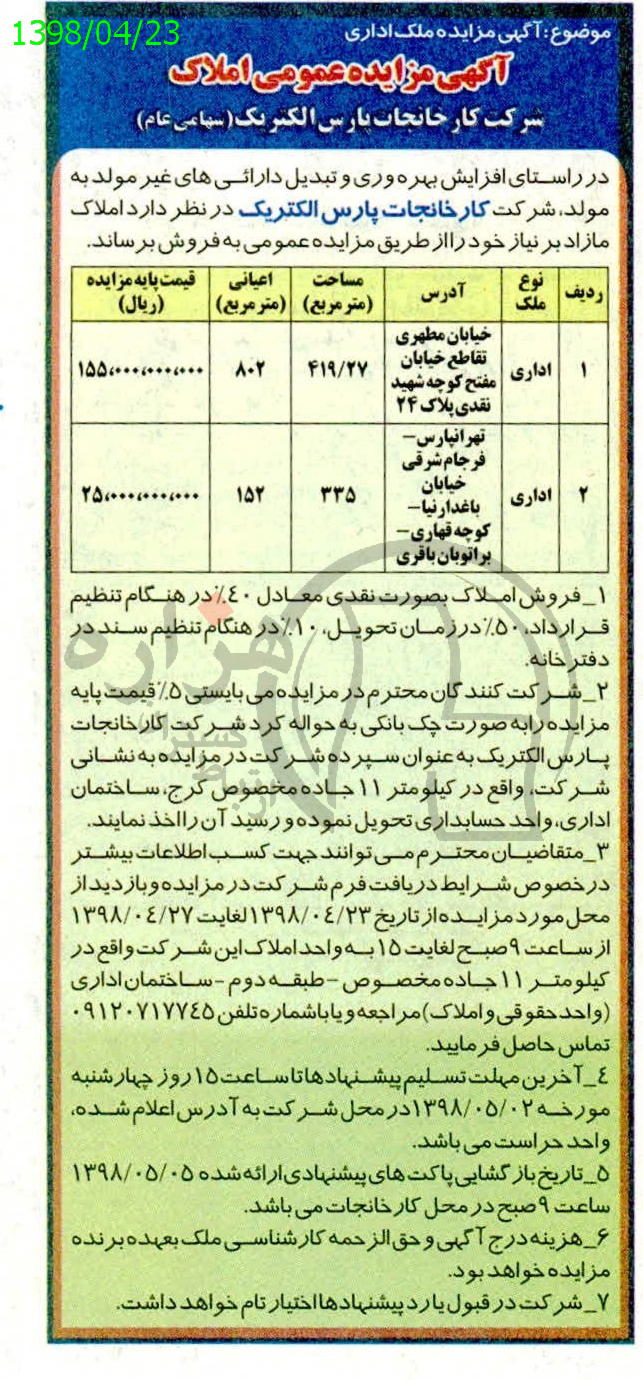 1398/04/23
موضوع: آگهی مزایده ملک اداری
آگهی مزایده عمومی املاک
شرکت کارخانجات پارس الکتریک (سهامی عام)
در راستای افزایش بهره وری و تبدیل دارائی های غیر مولد به
مولد، شرکت کارخانجات پارس الکتریک در نظر دارد املاک
مازاد بر نیاز خود را از طریق مزایده عمومی به فروش برساند.
ردیف نوع ملک آدرس مساحت (متر مربع) اعیانی (متر مربع) قیمت پایه مزایده (ریال)
۱ اداری خیابان مطهری تقاطع خیابان مفتح کوچه شهید نقدی پلاک ۲۴ ۴۱۹/۲۷ ۸۰۲ ۱۵۵،۰۰۰،۰۰۰،۰۰۰
۲ اداری تهرانپارس – فرجام شرقی خیابان باغدارنیا – کوچه قهاری – براتوبان باقری ۳۳۵ ۱۵۲ ۲۵،۰۰۰،۰۰۰،۰۰۰
۱_فروش املاک بصورت نقدی معادل ۴۰٪ در هنگام تنظیم
قرارداد، ۵۰٪ در زمان تحویل، ۱۰٪ در هنگام تنظیم سند در
دفترخانه.
۲_شرکت کنندگان محترم در مزایده می بایستی ۵٪ قیمت پایه
مزایده را به صورت چک بانکی به حواله کرد شرکت کارخانجات
پارس الکتریک به عنوان سپرده شرکت در مزایده به نشانی
شرکت، واقع در کیلومتر ۱۱ جاده مخصوص کرج، ساختمان
اداری، واحد حسابداری تحویل نموده و رسید آن را اخذ نمایند.
۳_متقاضیان محترم می توانند جهت کسب اطلاعات بیشتر
در خصوص شرایط دریافت فرم شرکت در مزایده و بازدید از
محل مورد مزایده از تاریخ ۱۳۹۸/۰۴/۲۳ لغایت ۱۳۹۸/۰۴/۲۷
از ساعت ۹ صبح لغایت ۱۵ به واحد املاک این شرکت واقع در
کیلومتر ۱۱ جاده مخصوص – طبقه دوم - ساختمان اداری
(واحد حقوقی و املاک) مراجعه و یا با شماره تلفن ۰۹۱۲۰۷۱۷۷۴۵
تماس حاصل فرمایید.
۴_آخرین مهلت تسلیم پیشنهادها تا ساعت ۱۵ روز چهارشنبه
مورخه ۱۳۹۸/۰۵/۰۲ در محل شرکت به آدرس اعلام شده،
واحد حراست می باشد.
۵_تاریخ بازگشایی پاکت های پیشنهادی ارائه شده ۱۳۹۸/۰۵/۰۵
ساعت ۹ صبح در محل کارخانجات می باشد.
۶_هزینه درج آگهی و حق الزحمه کارشناسی ملک بعهده برنده
مزایده خواهد بود.
۷_شرکت در قبول یا رد پیشنهادها اختیار تام خواهد داشت.
هزاره